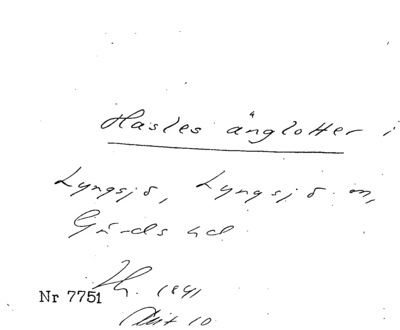 Hasles änglotter i
Lyngsjö, Lyngsjö sn,
Gärds hd
1941
Nr 7751